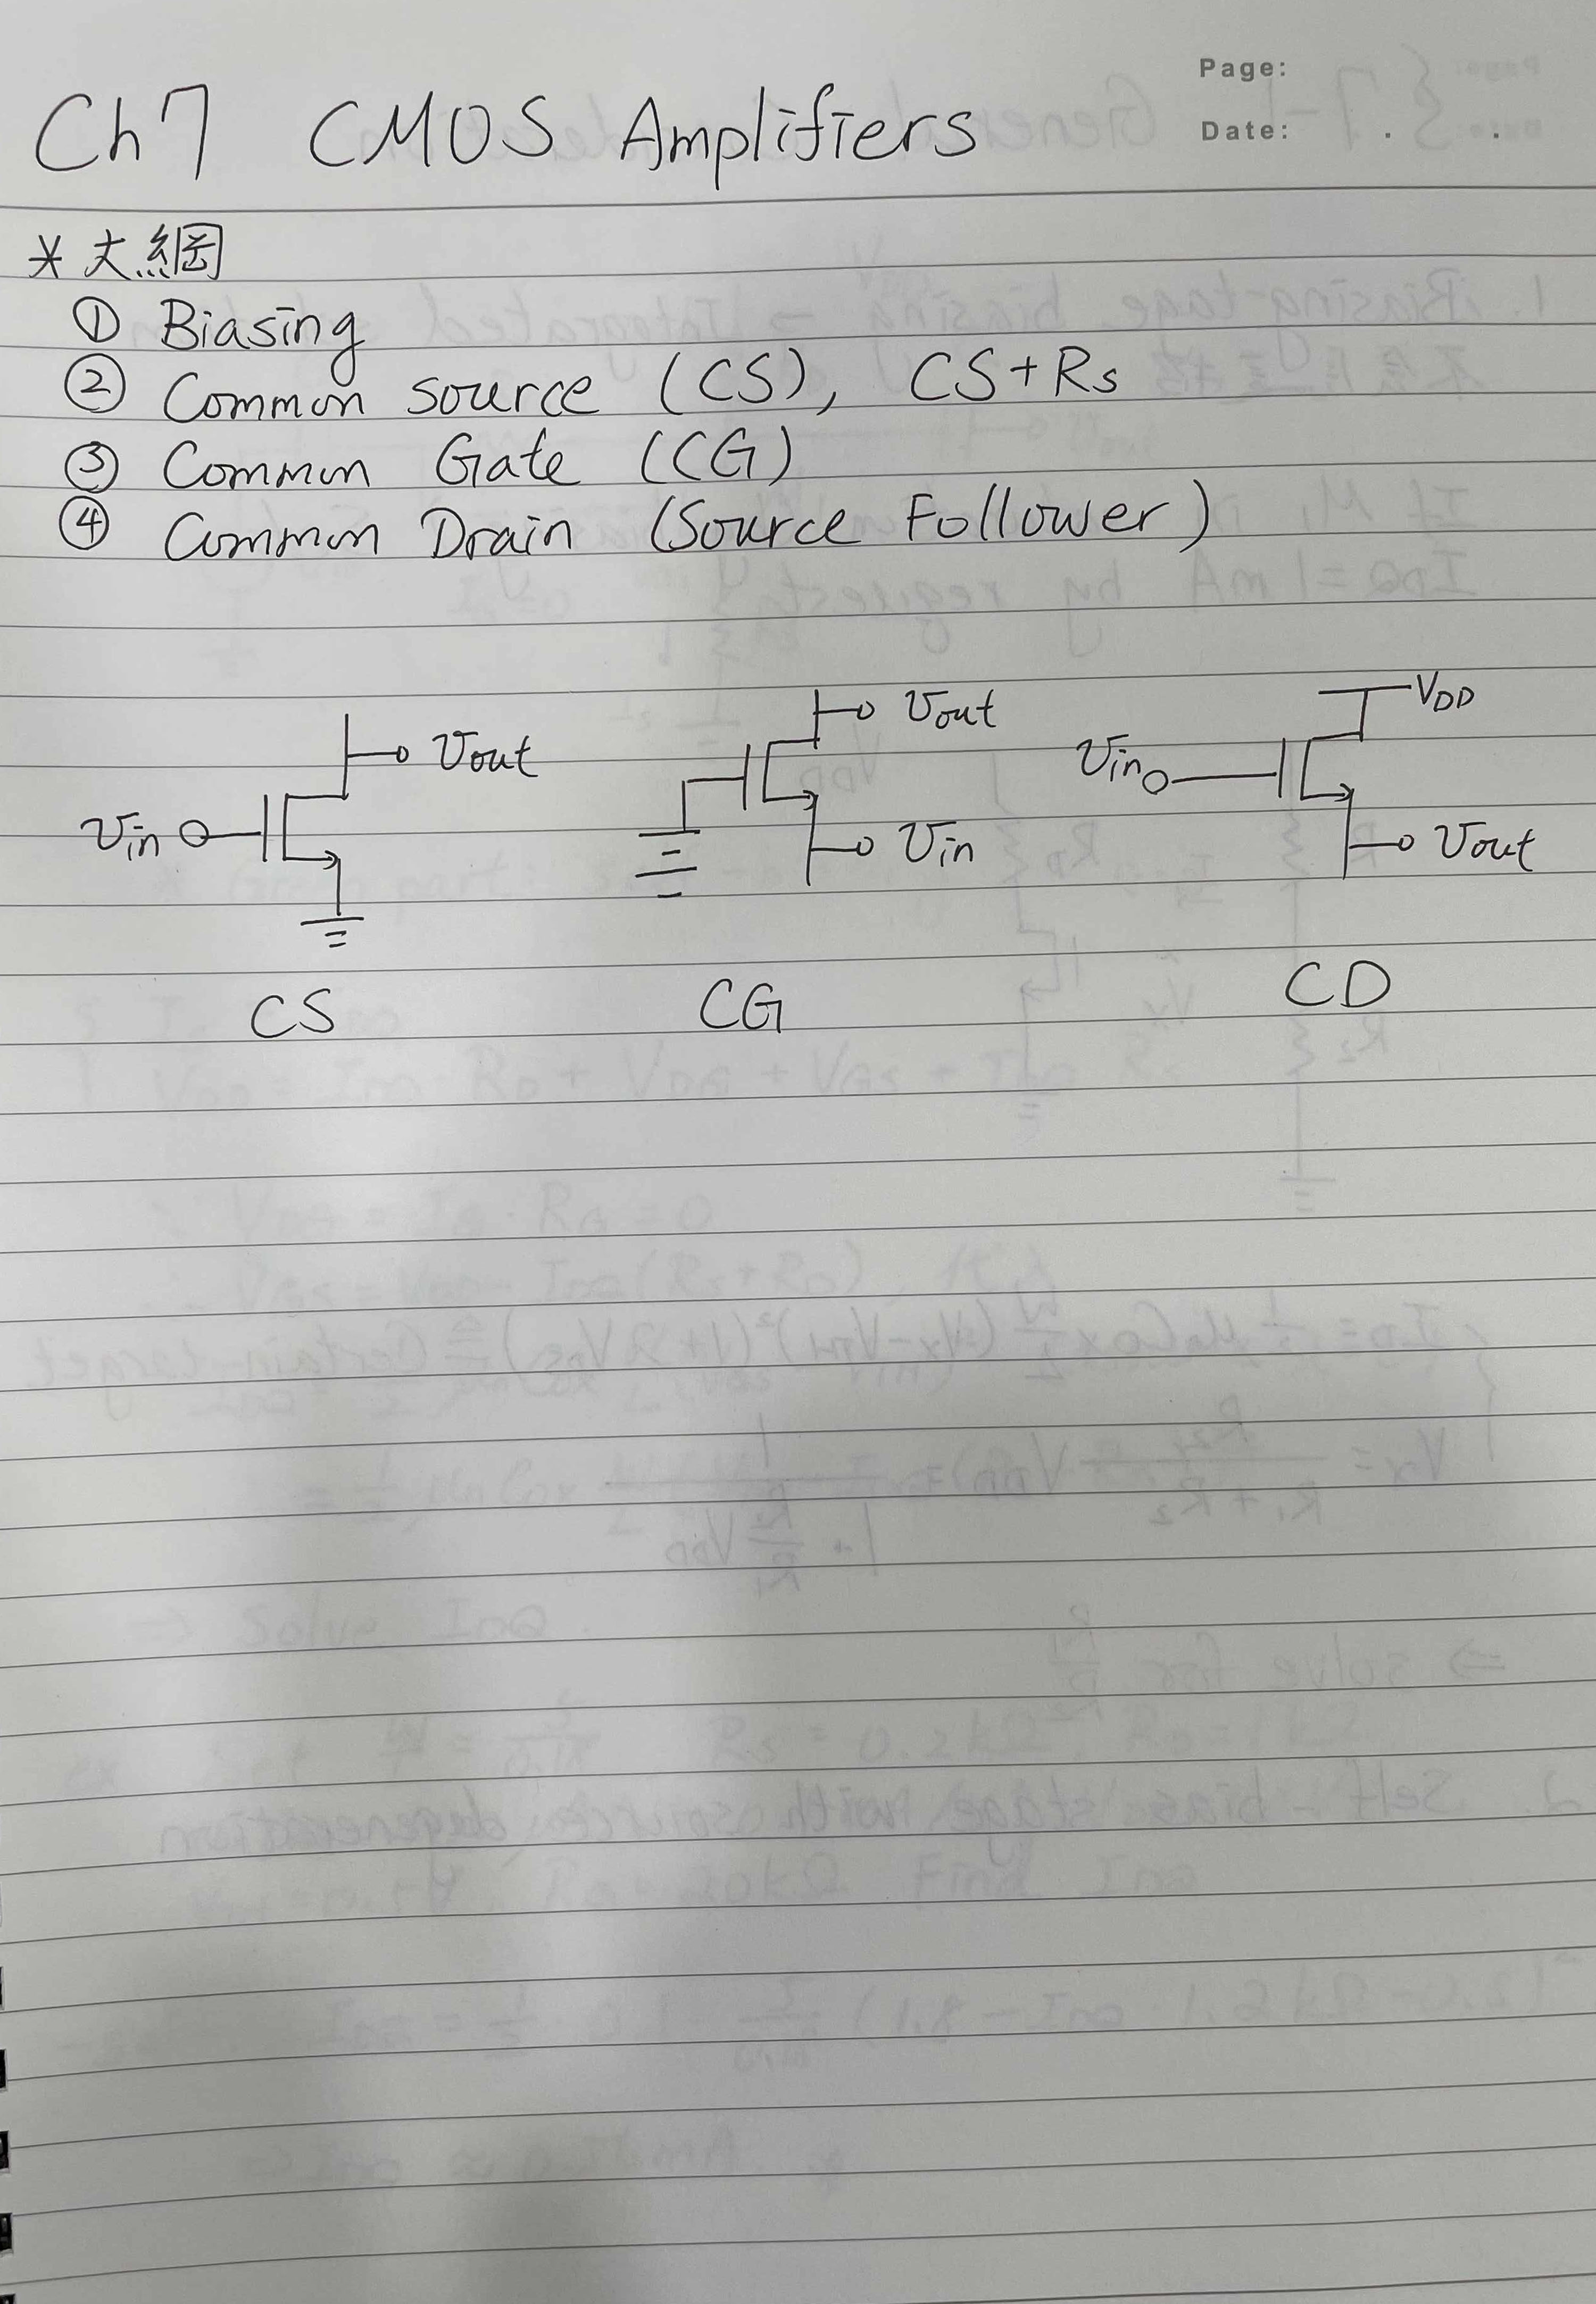 Page:
Date: . .
Ch7 CMOS Amplifiers
* 大綱
① Biasing
② Common source (CS), CS+Rs
③ Common Gate (CG)
④ Common Drain (Source Follower)
Vout
Vin
CS
Vout
Vin
CG
VDD
Vin
Vout
CD